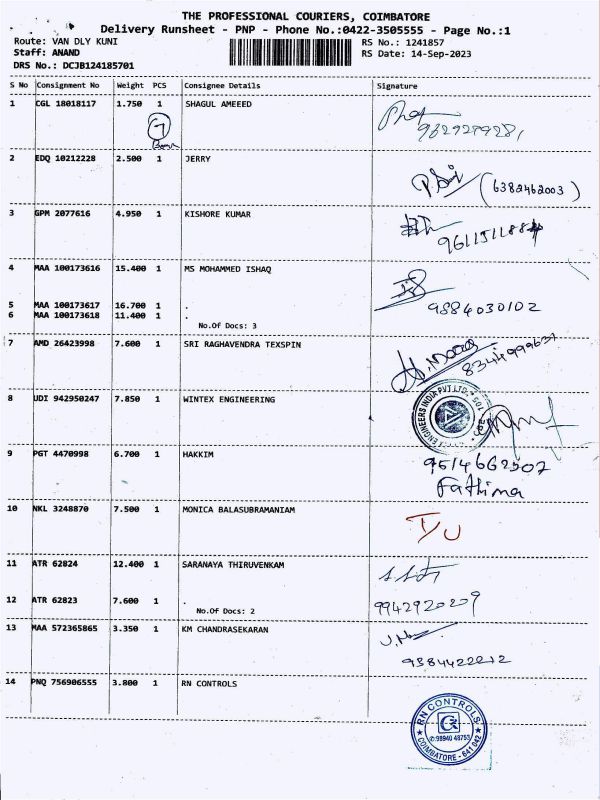 THE PROFESSIONAL COURIERS, COIMBATORE
Delivery Runsheet - PNP - Phone No.:0422-3505555 - Page No.:1
Route: VAN DLY KUNI RS No.: 1241857
Staff: ANAND RS Date: 14-Sep-2023
DRS No.: DCJB124185701
S No Consignment No Weight PCS Consignee Details Signature
1 CGL 18018117 1.750 1 SHAGUL AMEEED
7
2 EDQ 10212228 2.500 1 JERRY
(6382462003)
3 GPM 2077616 4.950 1 KISHORE KUMAR
4 MAA 100173616 15.400 1 MS MOHAMMED ISHAQ
5 MAA 100173617 16.700 1 .
9884030102
6 MAA 100173618 11.400 1 .
No.Of Docs: 3
7 AMD 26423998 7.600 1 SRI RAGHAVENDRA TEXSPIN
8 UDI 942950247 7.850 1 WINTEX ENGINEERING
ENGINEERS INDIA PVT.LTD.
9 PGT 4470998 6.700 1 HAKKIM
9514662507
Fathima
10 NKL 3248870 7.500 1 MONICA BALASUBRAMANIAM
11 ATR 62824 12.400 1 SARANAYA THIRUVENKAM
12 ATR 62823 7.600 1 .
9942920209
No.Of Docs: 2
13 MAA 572365865 3.350 1 KM CHANDRASEKARAN
9384422212
14 PNQ 756906555 3.800 1 RN CONTROLS
RN CONTROLS
98940 48753
COIMBATORE - 641 042